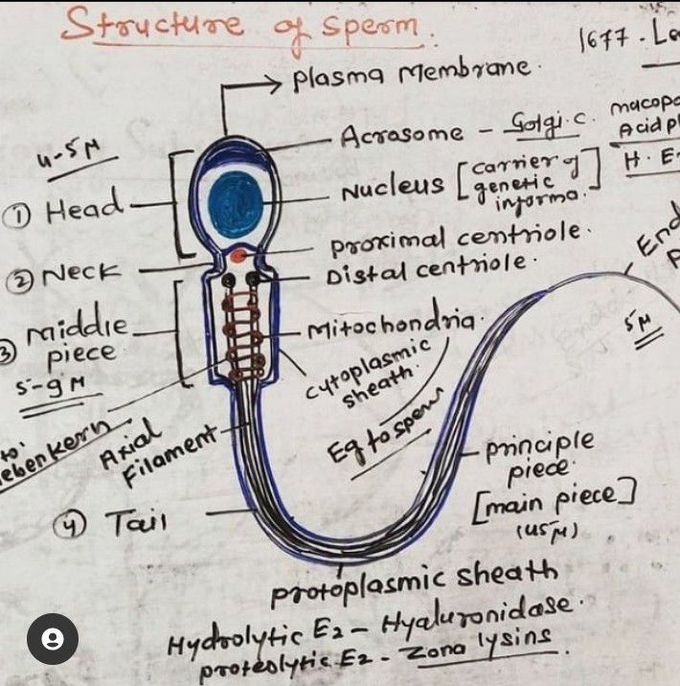 Structure of sperm.
1677 - Le
Plasma Membrane.
Acrasome - Golgi.c.
macopo
Acid pl
H. E
4-5 M
① Head
Nucleus [carrier of
genetic
informa.]
proximal centriole.
② Neck
Distal centriole.
End
P
③ middle
piece
5-9 M
Mitochondria.
5M
cytoplasmic
sheath.
to
eben kern
Axial
Filament
Eq to sperm
principle
piece
[main piece]
(45M)
④ Tail
protoplasmic sheath
Hydrolytic E2 - Hyaluronidase.
proteolytic E2 - Zona lysins.